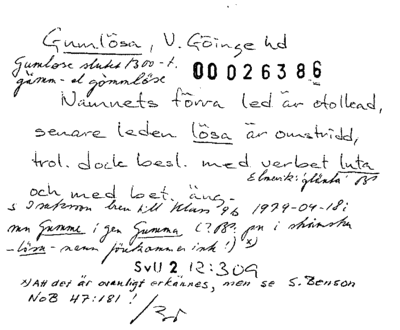 Gumlösa, V. Göinge hd
Gumlöse slutet 1300-t.
00026386
gumm- el gommlöse
Namnets förra led är otolkad,
senare leden lösa är omstridd,
trol. dock besl. med verbet luta
Elmevik: glänta
och med bet. äng.
brev till 1979-04-18:
mn Gumme i gen Gumma (? på skånska
-lösa- namn förekommer ink!) x)
SvU 2 12:309
x) Att det är ovanligt erkännes, men se S. Benson
NoB 47:181!